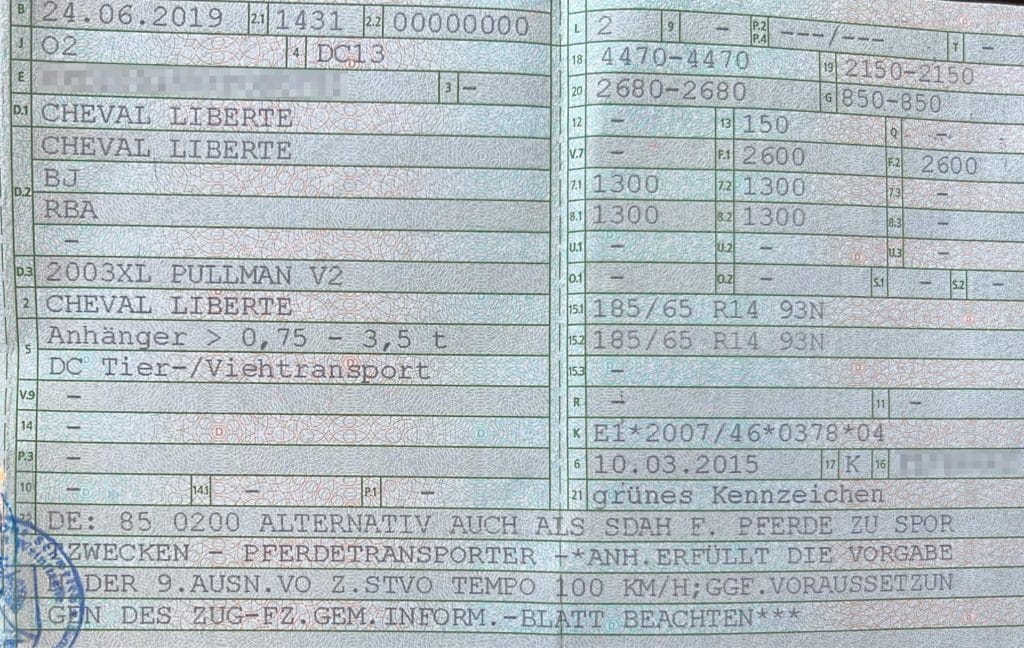 B 24.06.2019 2.1 1431 2.2 00000000
J O2 4 DC13
E 3 –
D.1 CHEVAL LIBERTE
CHEVAL LIBERTE
D.2 BJ
RBA
–
D.3 2003XL PULLMAN V2
2 CHEVAL LIBERTE
5 Anhänger > 0,75 - 3,5 t
DC Tier-/Viehtransport
V.9 –
14 –
P.3 –
10 – 14.1 – P.1 –
L 2 9 – P.2 P.4 ---/--- T –
18 4470-4470 19 2150-2150
20 2680-2680 G 850-850
12 – 13 150 Q –
V.7 – F.1 2600 F.2 2600
7.1 1300 7.2 1300 7.3 –
8.1 1300 8.2 1300 8.3 –
U.1 – U.2 – U.3 –
O.1 – O.2 – S.1 – S.2 –
15.1 185/65 R14 93N
15.2 185/65 R14 93N
15.3 –
R – 11 –
K E1*2007/46*0378*04
6 10.03.2015 17 K 16
21 grünes Kennzeichen
DE: 85 0200 ALTERNATIV AUCH ALS SDAH F. PFERDE ZU SPOR
ZWECKEN - PFERDETRANSPORTER -*ANH.ERFÜLLT DIE VORGABE
DER 9.AUSN.VO Z.STVO TEMPO 100 KM/H;GGF.VORAUSSETZUN
GEN DES ZUG-FZ.GEM.INFORM.-BLATT BEACHTEN***